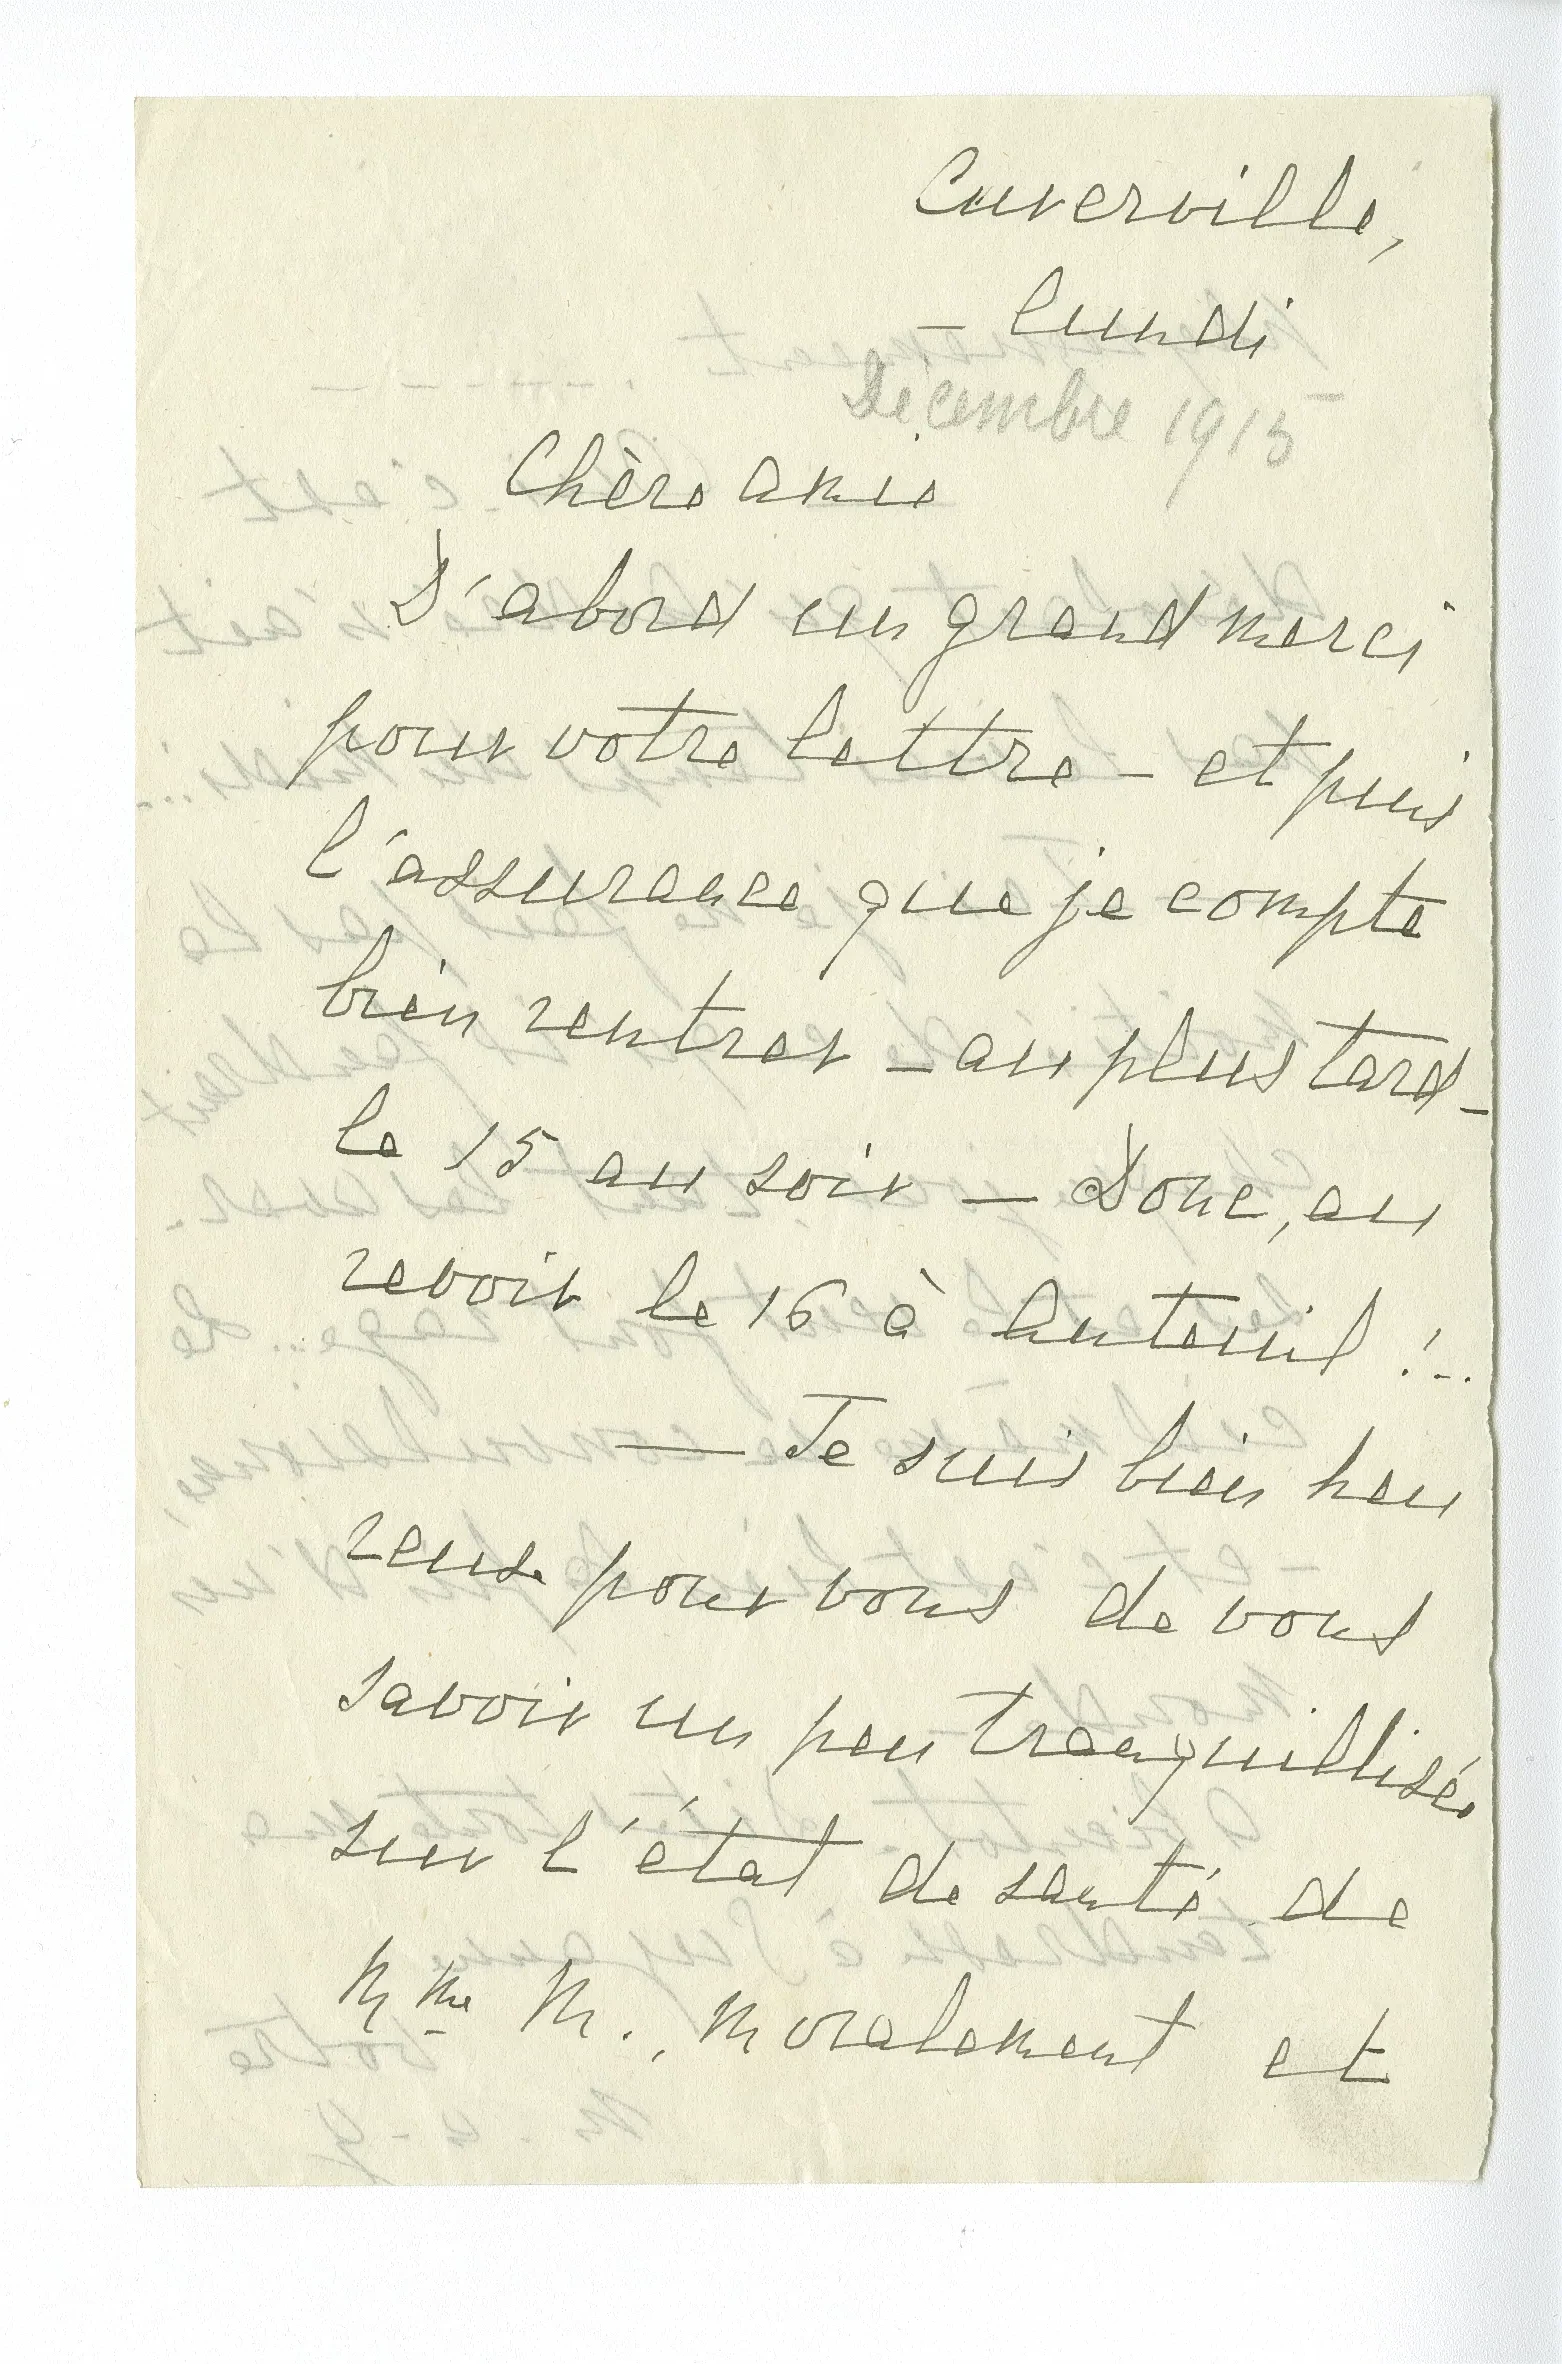 Cuverville,
— lundi
Décembre 1915
Chère amie
D'abord un grand merci
pour votre lettre — et puis
l'assurance que je compte
bien rentrer — au plus tard —
le 15 au soir — Donc, au
revoir le 16 à Auteuil !..
— Je suis bien heu
reuse pour vous de vous
savoir un peu tranquillisée
sur l'état de santé de
Mme M., moralement et